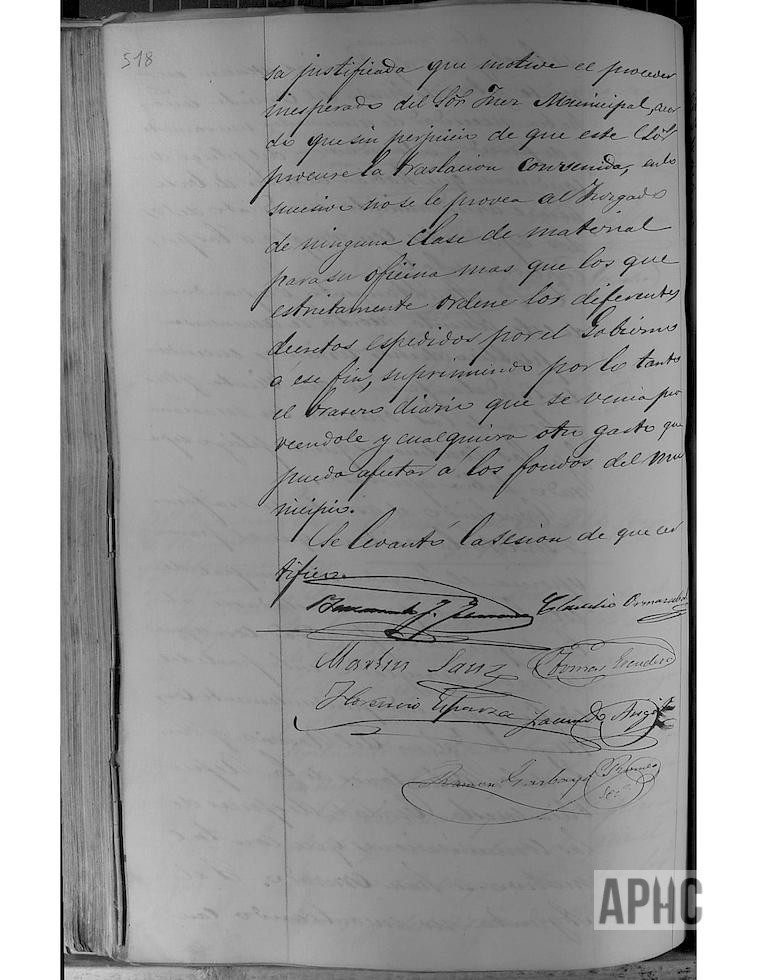 518
sa justificada que motive el proceder
inesperado del Sor Juez Municipal, acor
dó que sin perjuicio de que este Sor
procure la traslacion convenida, en lo
sucesivo no se le provea al Juzgado
de ninguna clase de material
para su oficina mas que los que
estrictamente ordene los diferentes
decretos espedidos por el Gobierno
á ese fin, suprimiendo por lo tanto
el brasero diario que se venia pro
veendole y cualquiera otro gasto que
pueda afectar á los fondos del mu
nicipio.
Se levantó la sesion de que cer
tifico.
Claudio Ormazabal
Martin Sanz Tomas Escudero
Florencio Esparza Jacundo
Ramon Garbayo
Sec
APHC